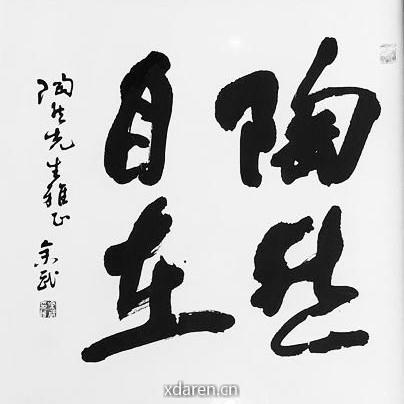 陶然
自在
陶然先生雅正
xdaren.cn